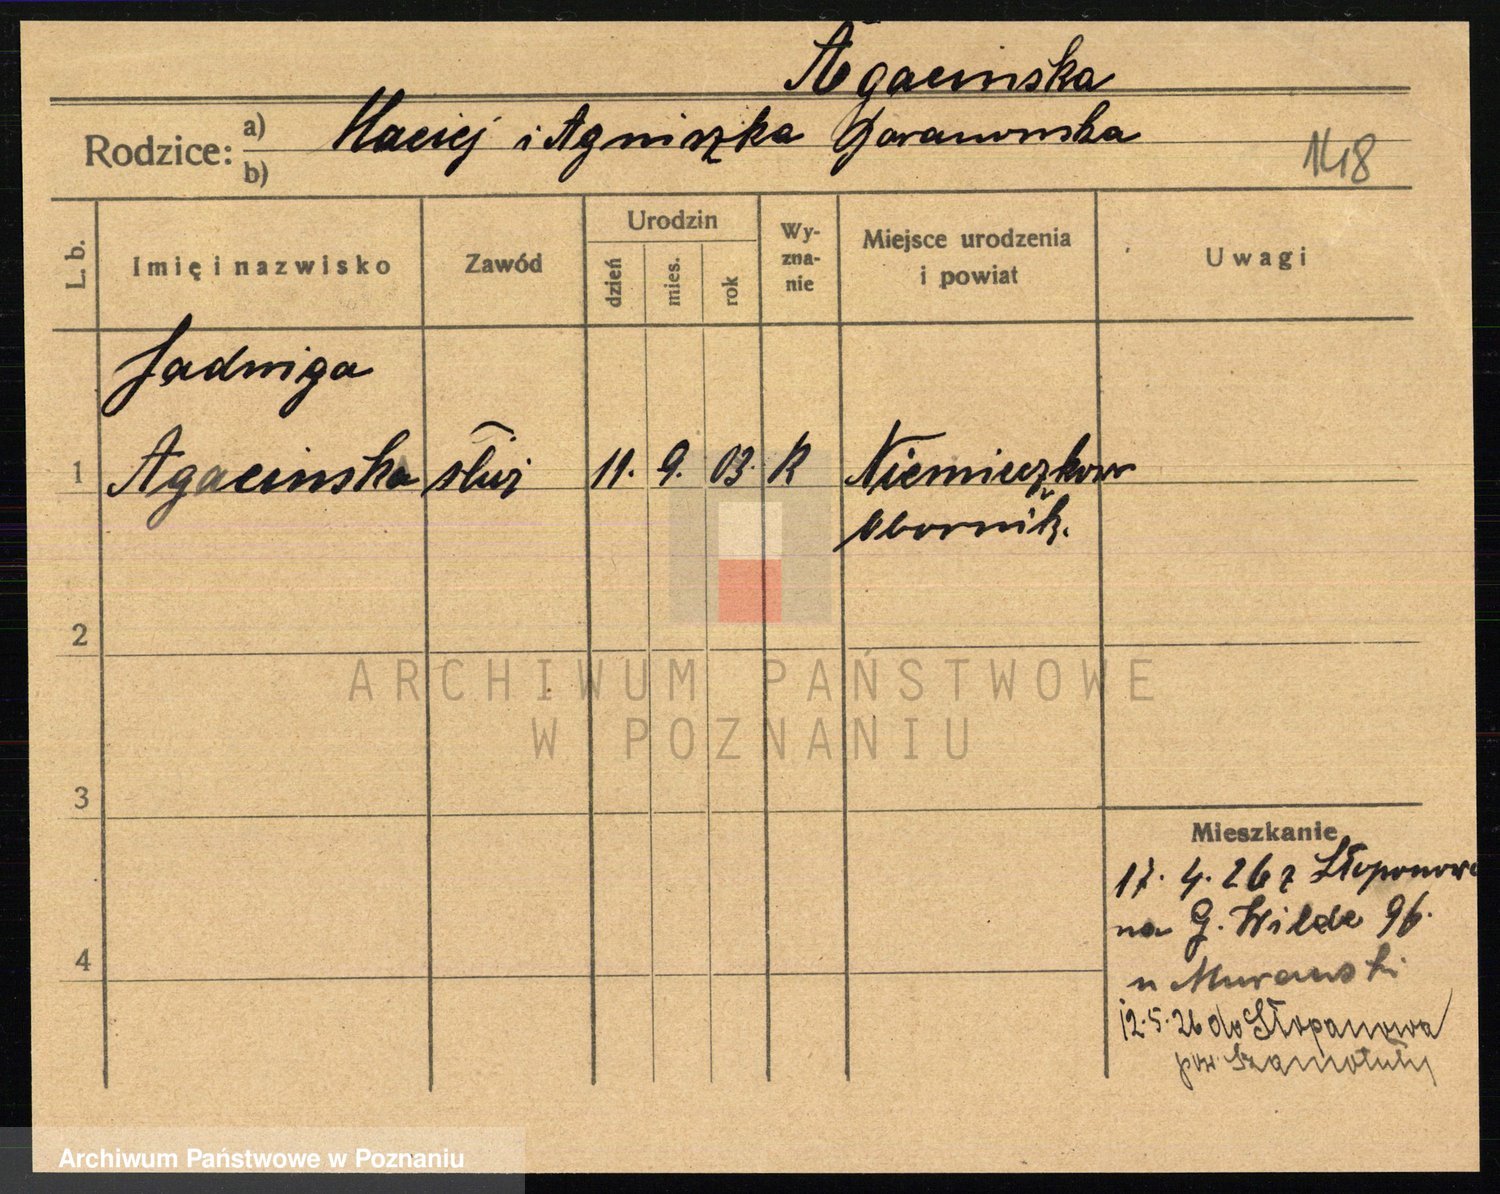 Agacinska
Rodzice: a) b) Maciej i Agniszka Garanowska
148
L. b. Imię i nazwisko Zawód Urodzin dzień mies. rok Wy-zna-nie Miejsce urodzenia i powiat Uwagi
Jadwiga
1 Agacinska służ 11. 9. 03. R Niemieczkowo
Obornik.
2
ARCHIWUM PAŃSTWOWE
W POZNANIU
3
Mieszkanie
17. 4. 26 z Słoponowa
na G. Wilde 96.
u Murawski
4
12.5.26 do Słopanowa
pow Szamotuły
Archiwum Państwowe w Poznaniu